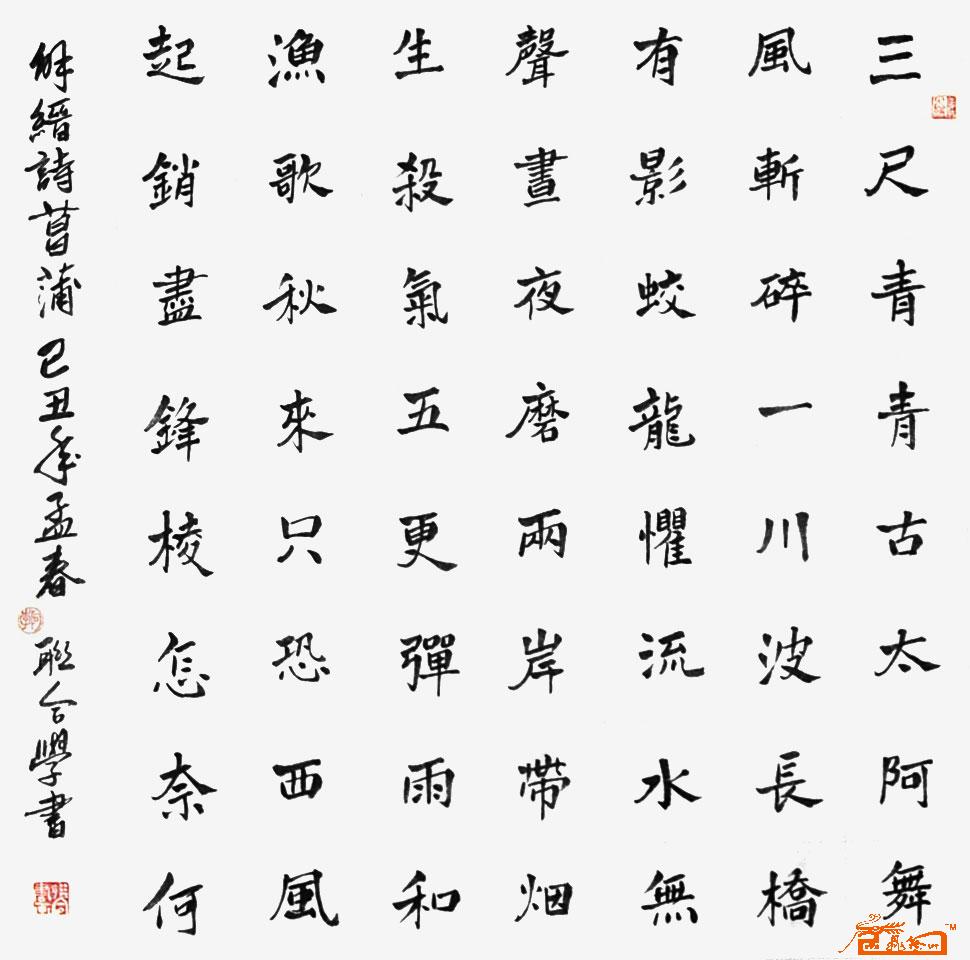 三尺青青古太阿舞
風斬碎一川波長橋
有影蛟龍懼流水無
聲晝夜磨兩岸帶烟
生殺氣五更彈雨和
漁歌秋來只恐西風
起銷盡鋒棱怎奈何
解縉詩菖蒲己丑年孟春 聯合學書